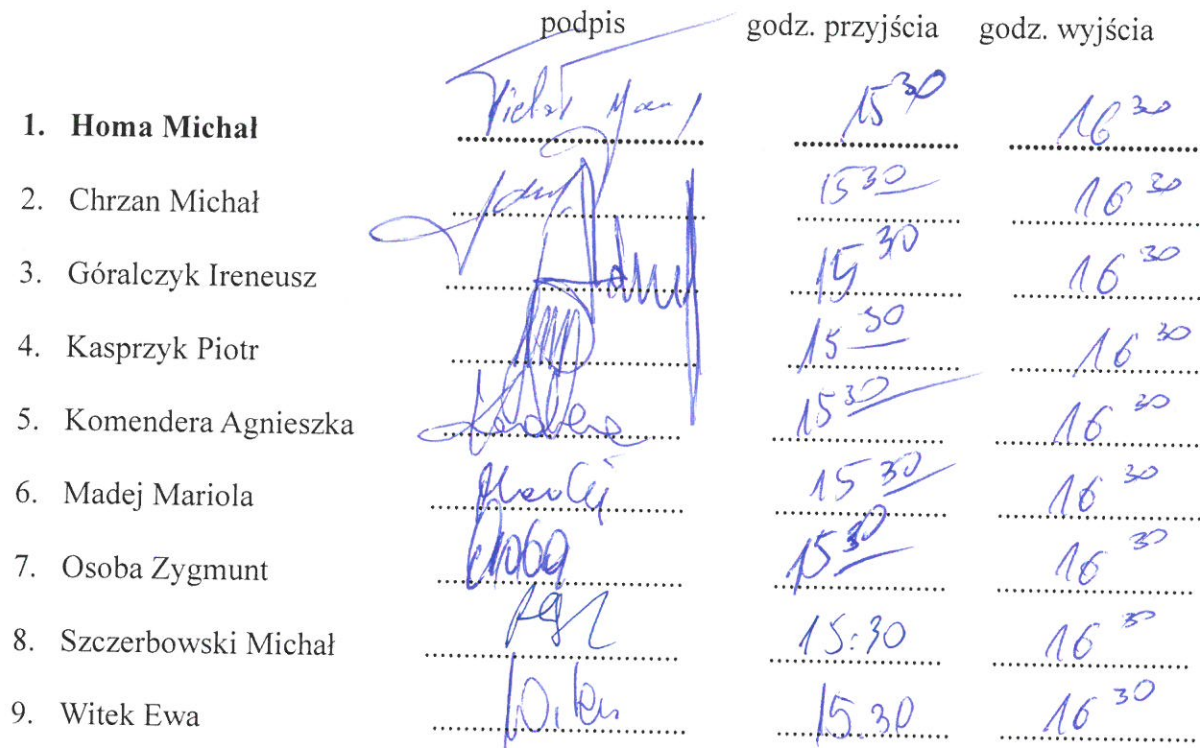 podpis godz. przyjścia godz. wyjścia
1. Homa Michał 15 30 16 30
2. Chrzan Michał 15 30 16 30
3. Góralczyk Ireneusz 15 30 16 30
4. Kasprzyk Piotr 15 30 16 30
5. Komendera Agnieszka 15 30 16 30
6. Madej Mariola 15 30 16 30
7. Osoba Zygmunt Osoba 15 30 16 30
8. Szczerbowski Michał 15:30 16 30
9. Witek Ewa 15.30 16 30